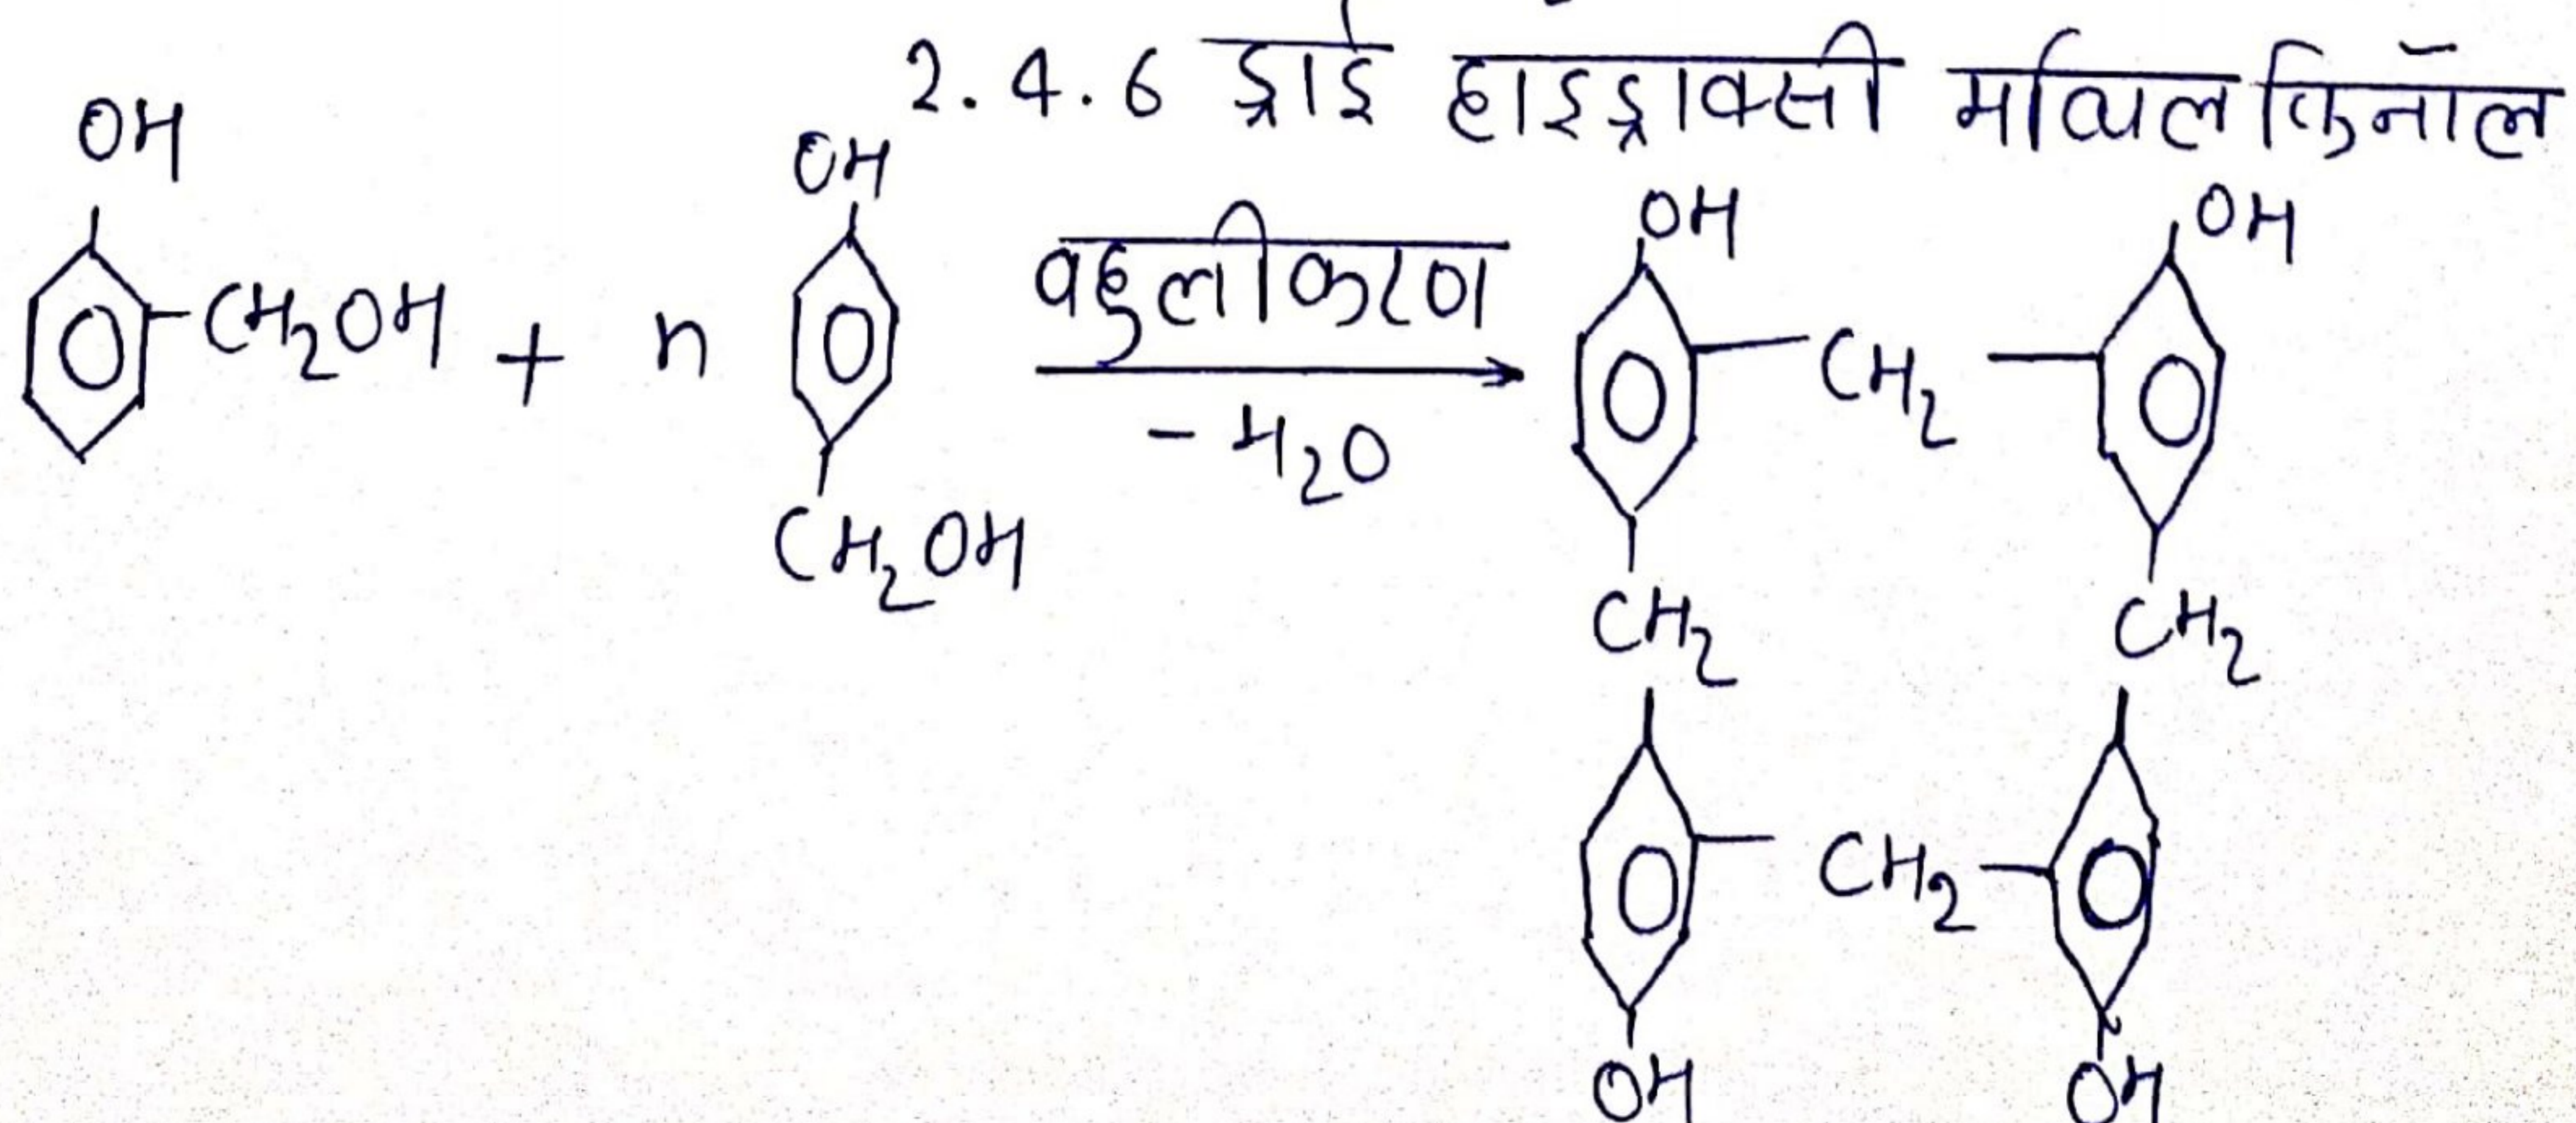 2.4.6 ड्राई हाइड्राक्सी मथिल फिनॉल
OH OH OH OH
CH2OH + n बहुलीकरण CH2
-H2O
CH2OH
CH2 CH2
CH2
OH OH